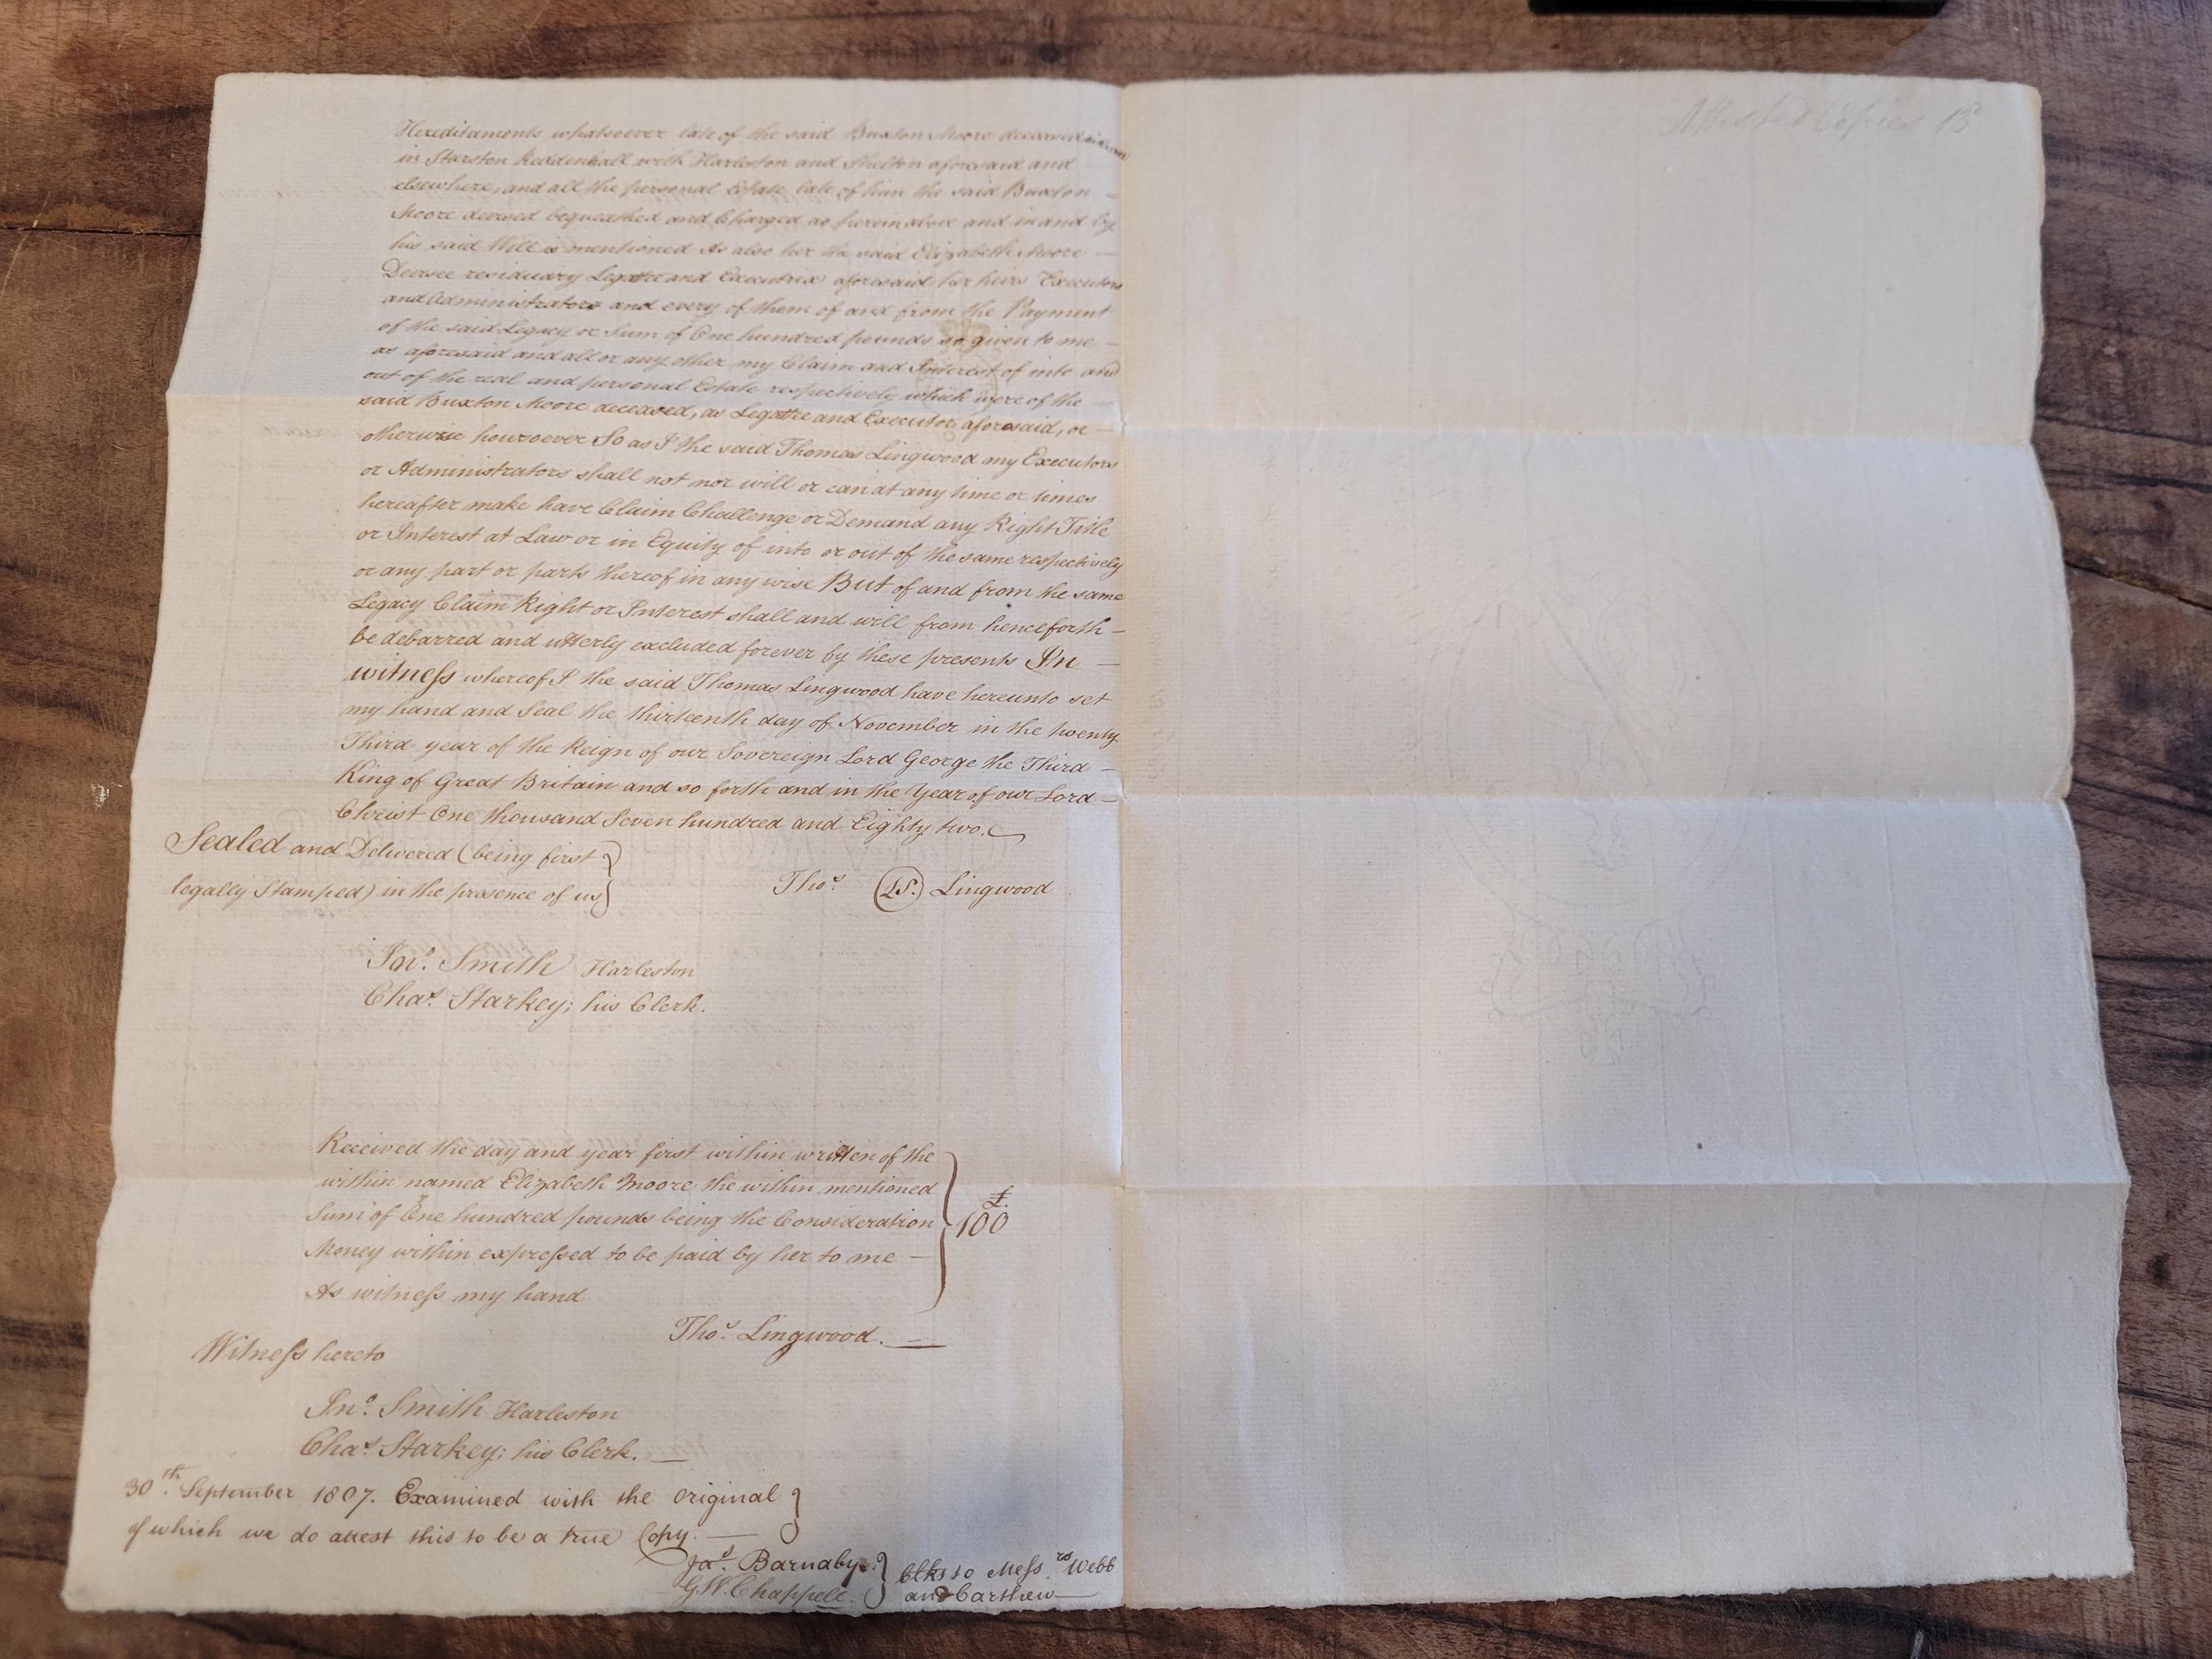 Hereditaments whatsoever late of the said Buxton Moore deceased
in Starston Reddenhall with Harleston and Shelton aforesaid and
elsewhere, and all the personal Estate late of him the said Buxton —
Moore devised bequeathed and Charged as herein above and in and by
his said Will is mentioned As also her the said Elizabeth Moore —
Devisee residuary Legatee and Executrix aforesaid her heirs Executors
and Administrators and every of them of and from the Payment
of the said Legacy or Sum of One hundred pounds so given to me —
as aforesaid and all or any other my Claim and Interest of into and
out of the real and personal Estate respectively which were of the —
said Buxton Moore deceased, as Legatee and Executor aforesaid, or —
otherwise howsoever So as I the said Thomas Lingwood my Executors
or Administrators shall not nor will or can at any time or times
hereafter make have Claim Challenge or Demand any Right Title
or Interest at Law or in Equity of into or out of the same respectively
or any part or parts thereof in any wise But of and from the same
Legacy Claim Right or Interest shall and will from henceforth —
be debarred and utterly excluded forever by these presents In —
witneſs whereof I the said Thomas Lingwood have hereunto set
my hand and Seal the thirteenth day of November in the twenty
Third year of the Reign of our Sovereign Lord George the Third —
King of Great Britain and so forth and in the Year of our Lord —
Christ One thousand Seven hundred and Eighty two.
Sealed and Delivered (being first
legally Stamped) in the presence of us
Thos. LS. Lingwood
Jno. Smith Harleston
Chas. Starkey; his Clerk.
Received the day and year first within written of the
within named Elizabeth Moore the within mentioned
Sum of One hundred pounds being the Consideration
Money within expreſsed to be paid by her to me —
As witneſs my hand
£.
100
Thos. Lingwood. —
Witneſs hereto
Jno. Smith Harleston
Chas. Starkey; his Clerk. —
30th. September 1807. Examined with the Original
of which we do attest this to be a true Copy. —
Jas. Barnaby.
G W Chappell.
Clks to Meſsrs. Webb
and Carthew —
Attested Copies